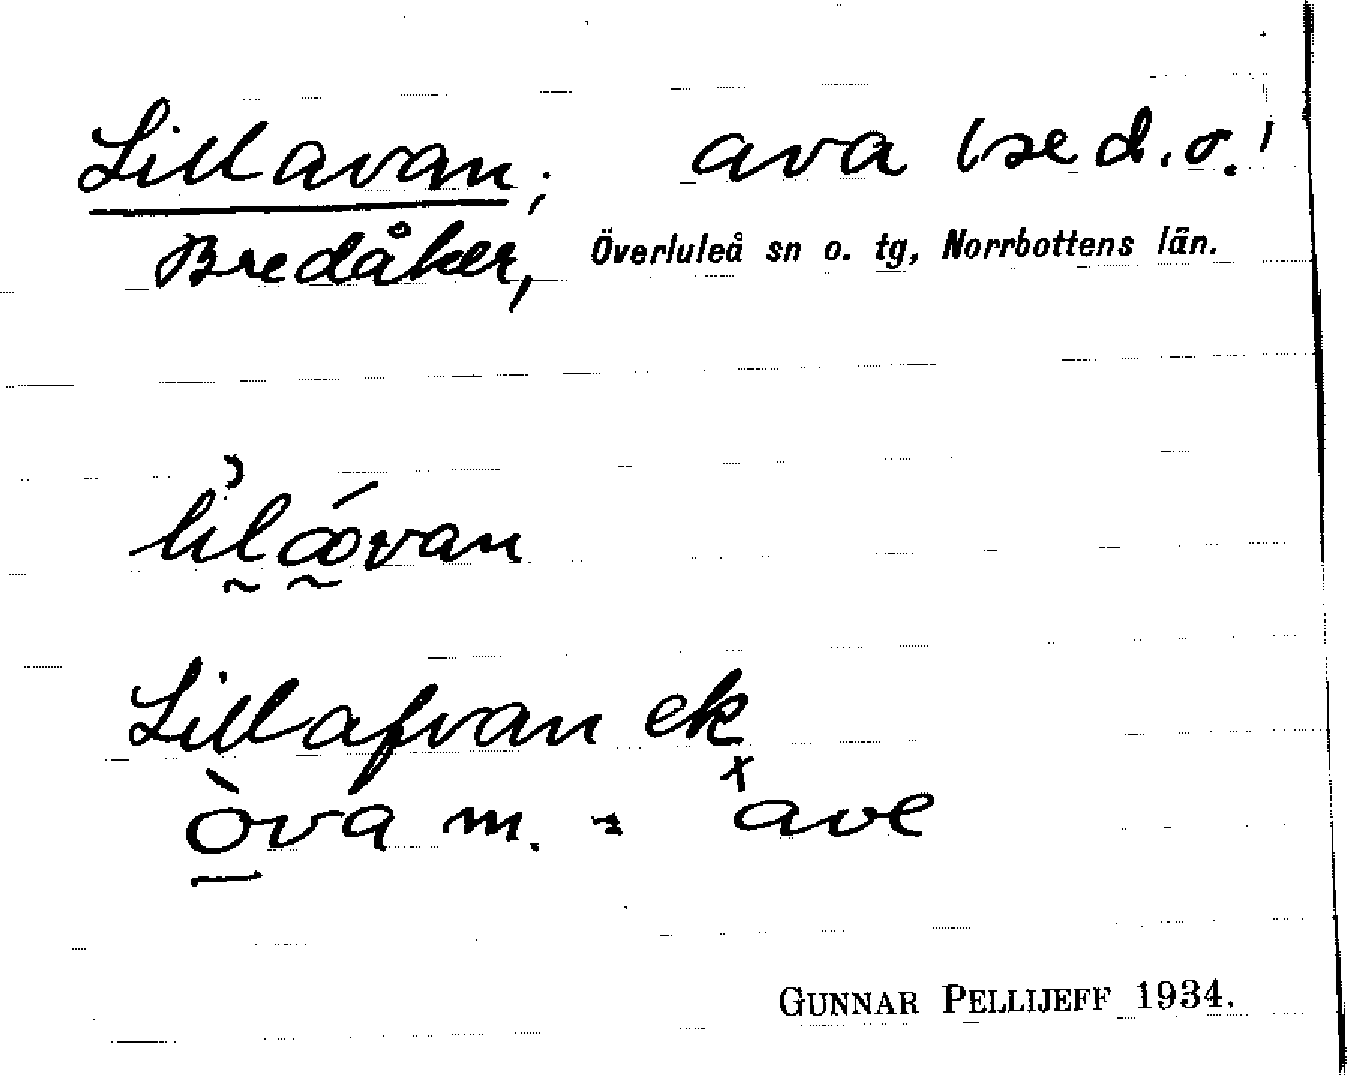 Lillavan; ava (se d.o.)
Bredåker, Överluleå sn o. tg, Norrbottens län.
Lillafvan ek
òva m. = ˣave
GUNNAR PELLIJEFF 1934.